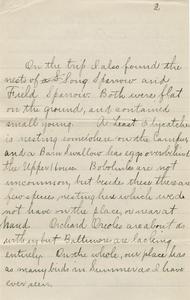 2
On the trip I also found the
nests of a Song Sparrow and
Field Sparrow. Both were flat
on the ground, and contained
small young. A Least Flycatcher
is nesting somewhere on the Campus
and a Barn Swallow has eggs overhead in
the Upper House. Bobolinks are not
uncommon, but beside these there are
few species nesting here which we do
not have on the place, or near at
hand. Orchard Orioles are about as
with us but Baltimores are lacking
entirely. On the whole, our place has
as many birds in summer as I have
ever seen.